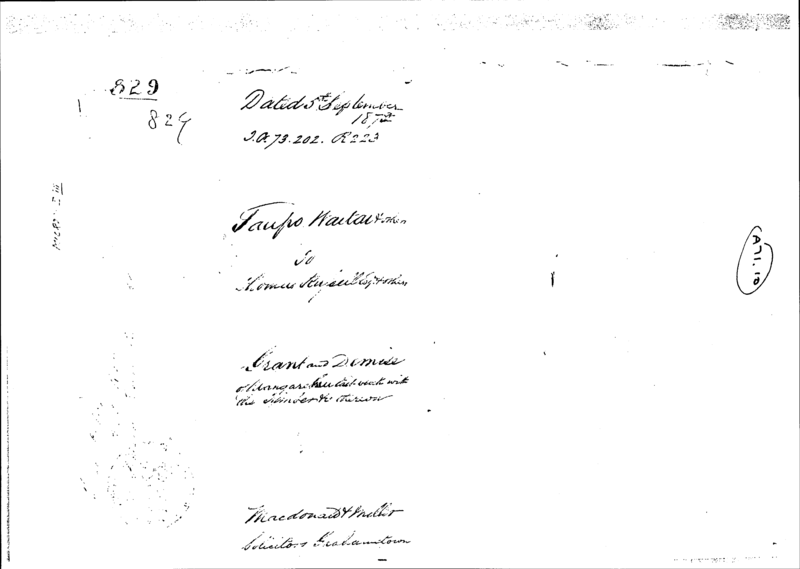 829
829
Dated 5th September
187
J.A. 73.202. R223
Taupo Waitai & others
To
Thomas Russell Esq & others
Grant and Demise
East with
the Timber &c thereon
Macdonald & Miller
Solicitors Grahamstown
A71.10